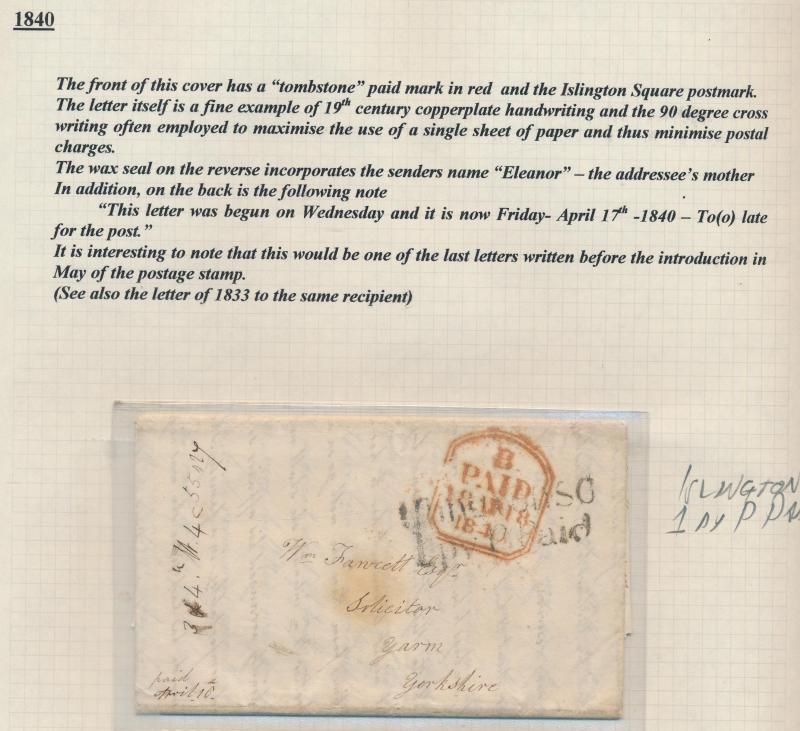 1840
The front of this cover has a “tombstone” paid mark in red and the Islington Square postmark.
The letter itself is a fine example of 19th century copperplate handwriting and the 90 degree cross
writing often employed to maximise the use of a single sheet of paper and thus minimise postal
charges.
The wax seal on the reverse incorporates the senders name “Eleanor” – the addressee’s mother
In addition, on the back is the following note
“This letter was begun on Wednesday and it is now Friday- April 17th -1840 – To(o) late
for the post.”
It is interesting to note that this would be one of the last letters written before the introduction in
May of the postage stamp.
(See also the letter of 1833 to the same recipient)
B
PAID
18 AP 18
1840
SO
1 py P Paid
Wm Fawcett Esqr
Solicitor
Yarm
Yorkshire
paid
April 18th
ISLINGTON
1 PY P PA